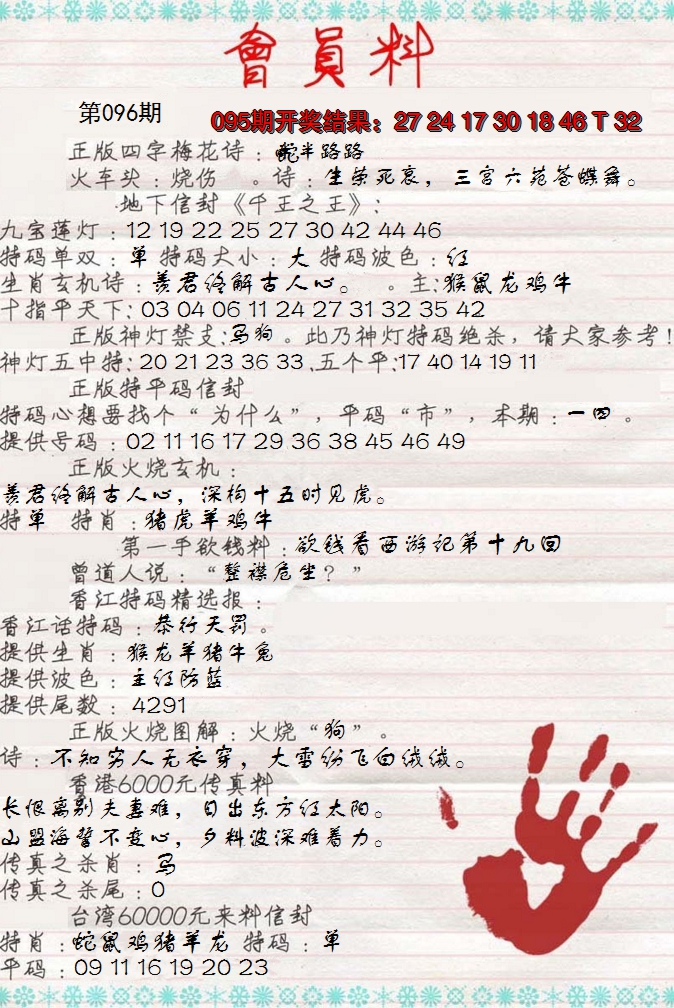 會員料
第096期
095期开奖结果：27 24 17 30 18 46 T 32
正版四字梅花诗：蛇半路路
火车头：烧伤 。诗：生荣死哀，三宫六苑苍蝶舞。
地下信封《千王之王》：
九宝莲灯：12 19 22 25 27 30 42 44 46
特码单双：单 特码大小：大 特码波色：红
生肖玄机诗：羡君终解古人心。 。主：猴鼠龙鸡牛
十指平天下：03 04 06 11 24 27 31 32 35 42
正版神灯禁支：马狗 。此乃神灯特码绝杀，请大家参考！
神灯五中特：20 21 23 36 33 .五个平：17 40 14 19 11
正版特平码信封
特码心想要找个“为什么”，平码“市”，本期：一四 。
提供号码：02 11 16 17 29 36 38 45 46 49
正版火烧玄机：
羡君终解古人心，深构十五时见虎。
特单 特肖：猪虎羊鸡牛
第一手欲钱料：欲钱看西游记第十九回
曾道人说：“整襟危坐？”
香江特码精选报：
香江话特码：恭行天罚 。
提供生肖：猴龙羊猪牛兔
提供波色：主红防蓝
提供尾数：4291
正版火烧图解：火烧“狗”。
诗：不知穷人无衣穿，大雪纷飞白绒绒。
香港6000元传真料
长恨离别夫妻难，日出东方红太阳。
山盟海誓不变心，乡料波深难着力。
传真之杀肖：马
传真之杀尾：0
台湾60000元来料信封
特肖：蛇鼠鸡猪羊龙 特码：单
平码：09 11 16 19 20 23